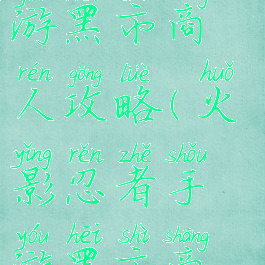 游黑市商
rén gōng lüè huǒ
人攻略(火
yǐng rěn zhě shǒu
影忍者手
yóu hēi shì shāng
游黑市商